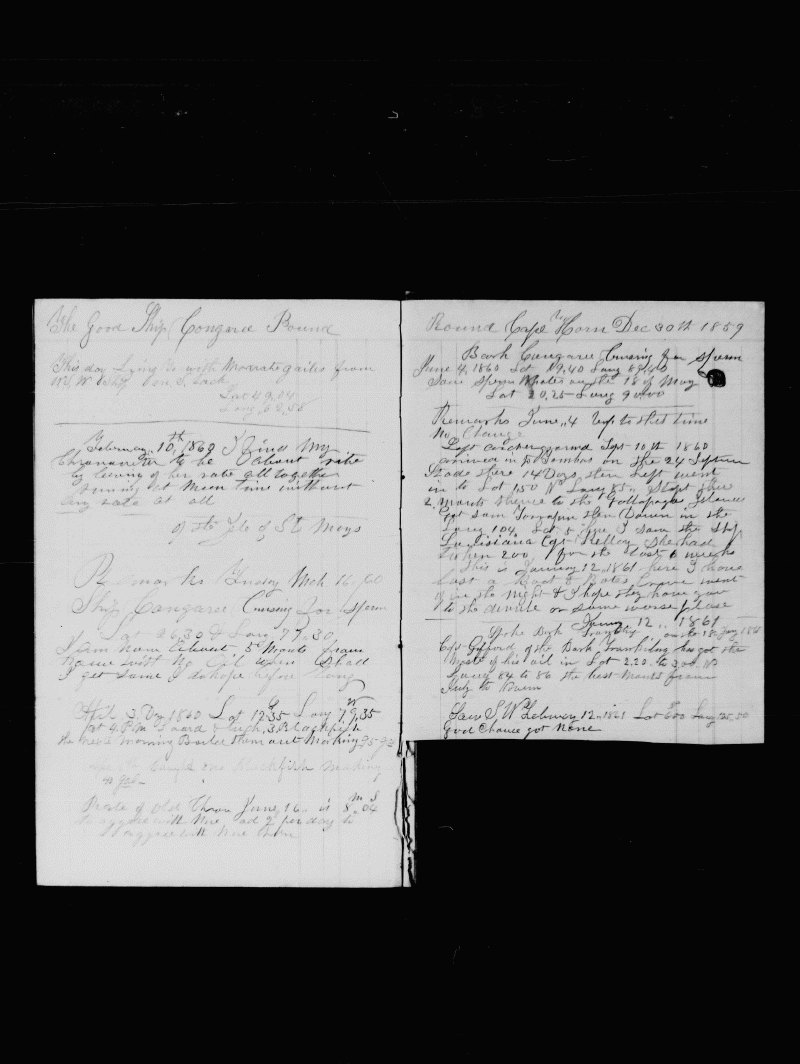 The Good Ship Congaree Bound
This day Lying To with Moderate gailes from
W.S.W. & Ship on S. tack
Lat 49,04
Long 62,58
February 10th 1860 I find My
Chronometer to be about rite
by leaving of her rate all together
runing at Mean time without
any rate at all
of the Isle of St Marys
Remarks Friday Mch 16, /60
Ship Congaree Cruising For Sperm
Lat 26,30 & Long 73,30,
I am now about 5 Months from
Home with No Oil When Shall
I get Some I do hope before long
April 3 Day 1860 Lat 17,35 Long 79,35
at 4 P.M. & caught 3 Blackfish
the next morning Boiled them out Making
caught one Blackfish Making
40 gal
Rate of Old Chron June 16 is 8m 04s
to aggree with New, ad 2 per day to
aggree with New Chron
Round Cape Horn Dec 30th 1859
Bark Congaree Cruising for Sperm
June 4, 1860 Lat 19,40 Long 84,40
Saw Sperm Whales on the 18 of May
Lat 20,25 Long 90,00
Remarks June, 4 up to this time
No Change
Left ground Sept 10th 1860
arrived in to Tombas on The 24 Septem
Staid there 14 Days, then left went
in to Lat 150 Long 85 Stopt there
2 Months thence to the Gallapagos Islands
Got Some Terrapin then Down in the
Long 104 Lat 5 here I Saw the Ship
Louisiana Capt Kelley She had
taken 200, for the last 6 weeks
This is January 12, 1861 here I have
Lost a Boat & Boats Crew went
off in the night & I hope they have gone
to the divile or some worse place
January 12, 1861
Spoke Bark on the 18 Jany 1861
Capt Gifford of the Bark has got the
Most of his oil in Lat 2,20 to 3,00
Long 84 to 86 the best Months from
July to Novem
Saw S, W, February 12, 1861 Lat 600 Long 25,50
good Chance got None